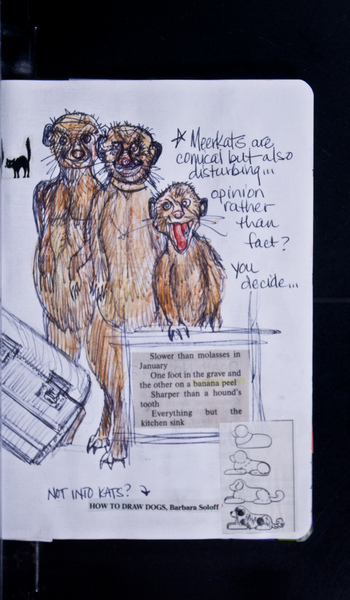 * Meerkats are
conical but also
disturbing...
opinion
rather
than
fact?
you
decide...
Slower than molasses in
January
One foot in the grave and
the other on a banana peel
Sharper than a hound's
tooth
Everything but the
kitchen sink
NOT INTO KATS?
HOW TO DRAW DOGS, Barbara Soloff